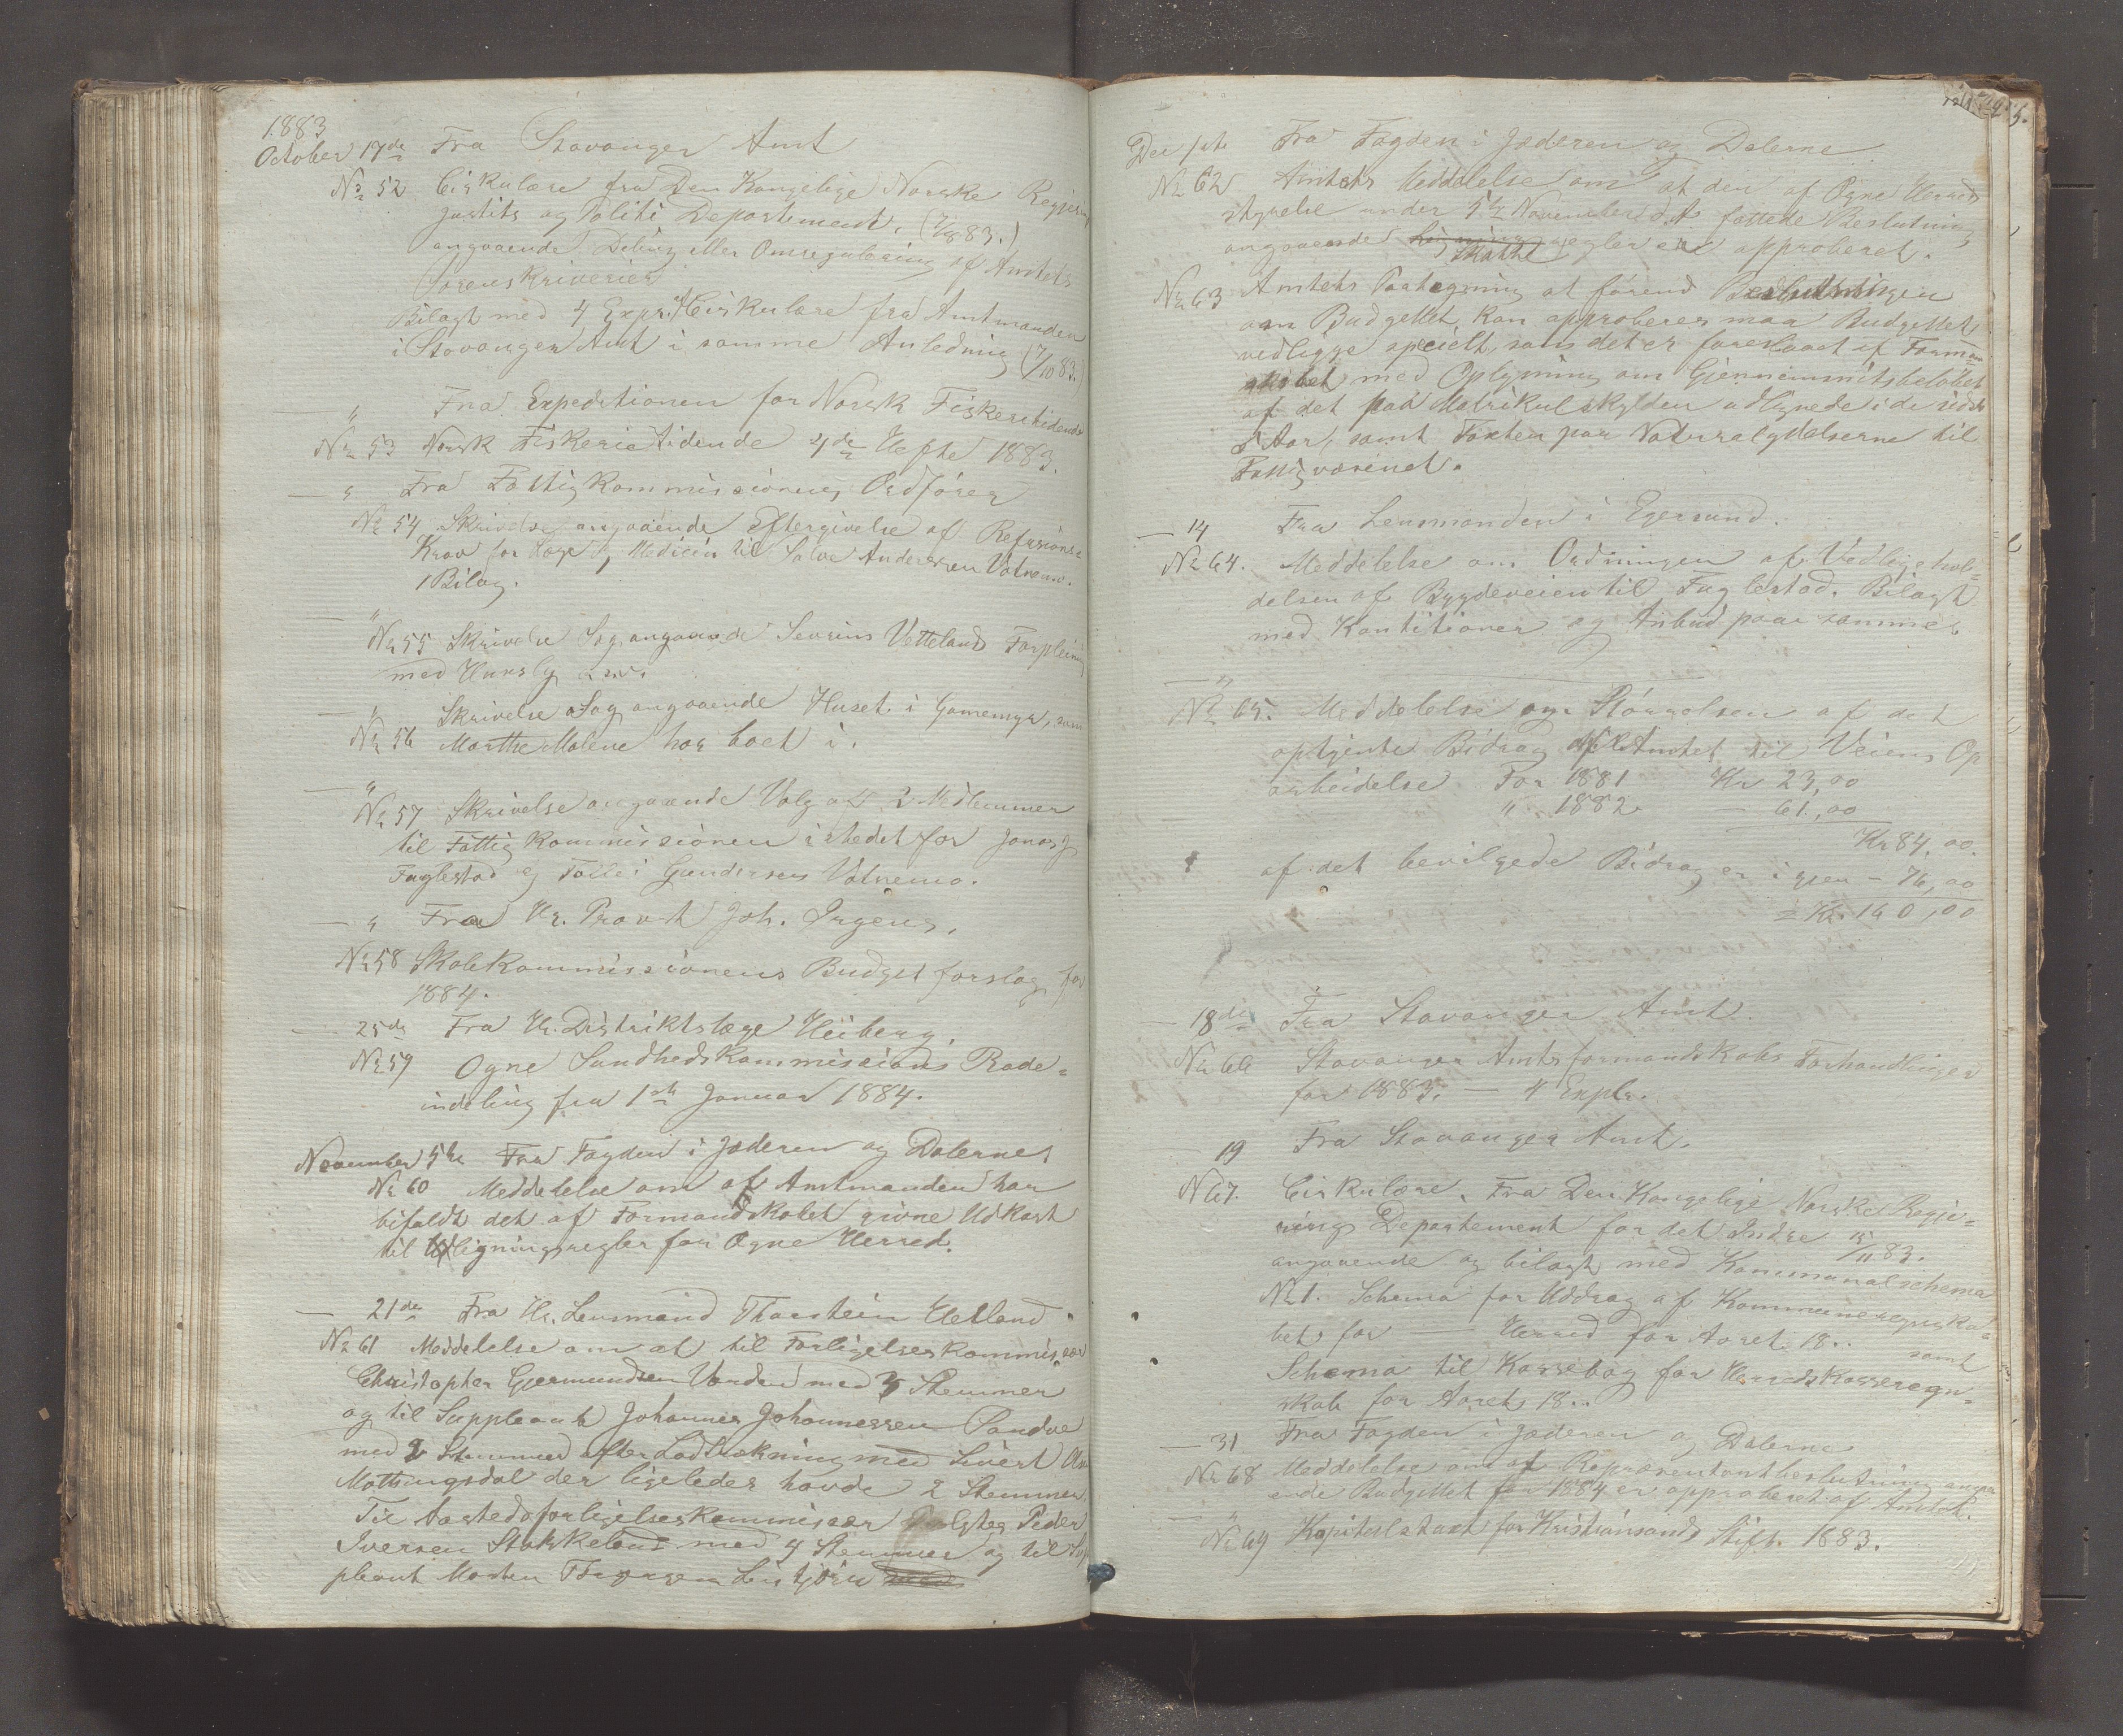 1883
October 17de Fra Stavanger Amt
No 52 Cirkulære fra Den Kongelige Norske Regjerings
Justits og Politi Departement.
angaaende Deling eller Omregulering af Amtets
Sorenskriverier
Bilagt med 4 Expr. Cirkulære fra Amtmanden
i Stavanger Amt i samme Anledning (7/10 83.)
" Fra Expeditionen for Norsk Fiskeritidende
No 53 Norsk Fiskerietidende 4de Hefte 1883.
— " Fra Fattigkommissionens Ordfører
No 54 Skrivelse angaaende Eftergivelse af Refusions=
Krav for Læge og Medicin til Salve Andersen Vatnemo.
1 Bilag.
— "
No 55 Skrivelse Sag angaaende Sevrins Vetteland Forpleining
med Huusly
— " Skrivelse Sag angaaende Huset i Gamemyr, som
No 56 Marthe Malene har boet i.
— "
No 57 Skrivelse angaaende Valg af 2 Medlemmer
til Fattigkommissionen istedet for Jonas J
Fuglestad og Tollei Gundersen Vatnemo.
— " Fra Hr. Provst Joh. Irgens.
No 58 Skolekommissionens Budget forslag for
1884.
— 25de Fra Hr. Distriktslæge Heiberg.
No 59 Ogne Sundhedskommissions Rode=
indeling fra 1ste Januar 1884.
November 5te Fra Fogden i Jæderen og Dalerne
No 60 Meddelelse om at Amtmanden har
bifaldt det af Formandskabet givne Udkast
til ligningsregler for Ogne Herred.
— 21de Fra Hr. Lensmand Thorstein Hetland
No 61 Meddelelse om at til Forligelseskommissær
Christopher Gjermundsen Varden med 3 Stemmer
og til Suppleant Johannes Johannessen Sandve
med 2 Stemmer efter Lodtrækning med Sivert
Mattingsdal der ligeledes havde 2 Stemmer.
Til Aastedsforligelseskommissær valgtes Peder
Iversen Stokkeland med 4 Stemmer og til Sup
pleant Morten
Fra Fogden i Jæderen og Dalerne
No 62 Amtets Meddelelse om at den af Ogne Herreds
styrelse under 5te November d. A. fattede Beslutning
angaaende Skatte regler ere approberet.
No 63 Amtets Paategning at førend Beslutningen
om Budgettet kan approberes maa Budgettet
vedligge specielt, som det er foreslaaet af Formand
skabet med Oplysning om Gjennemsnitsbeløbet
af det paa Matrikulskylden udlignede i de sidste
5 Aar, samt Taxten paa Naturalydelserne til
Fattigvæsenet.
— 14 Fra Lensmanden i Egersund.
No 64. Meddelelse om Ordningen af Vedligehol=
delsen af Bygdeveien til Fuglestad. Bilagt
med Kontitioner og Anbud paa samme.
— "
No 65. Meddelelse om Størrelsen af det
optjente Bidrag af Amtet til Veiens Op
arbeidelse For 1881 Kr 23,00
" 1882 - 61,00
Kr 84,00.
af det bevilgede Bidrag er igjen - 76,00
= Kr. 160,00
— 18de Fra Stavanger Amt.
No 66 Stavanger Amtsformandskabs Forhandlinger
for 1883. — 4 Explr.
— 19 Fra Stavanger Amt.
No 67. Cirkulære, Fra Den Kongelige Norske Regje=
rings Departement for det Indre 15/11 83.
angaaende og bilagt med Kommunalschema
No 1. Schema for Uddrag af Kommuneregnska=
bet for — Herred for Aaret 18.. samt
Schema til Kassebog for Herredskasseregn=
skab for Aaret 18..
— 31 Fra Fogden i Jæderen og Dalerne
No 68 Meddelelse om at Repræsentantbeslutning angaa
ende Budgettet for 1884 er approberet af Amtet.
— "
No 69 Kapitelstaxt for Kristiansands Stift. 1883.